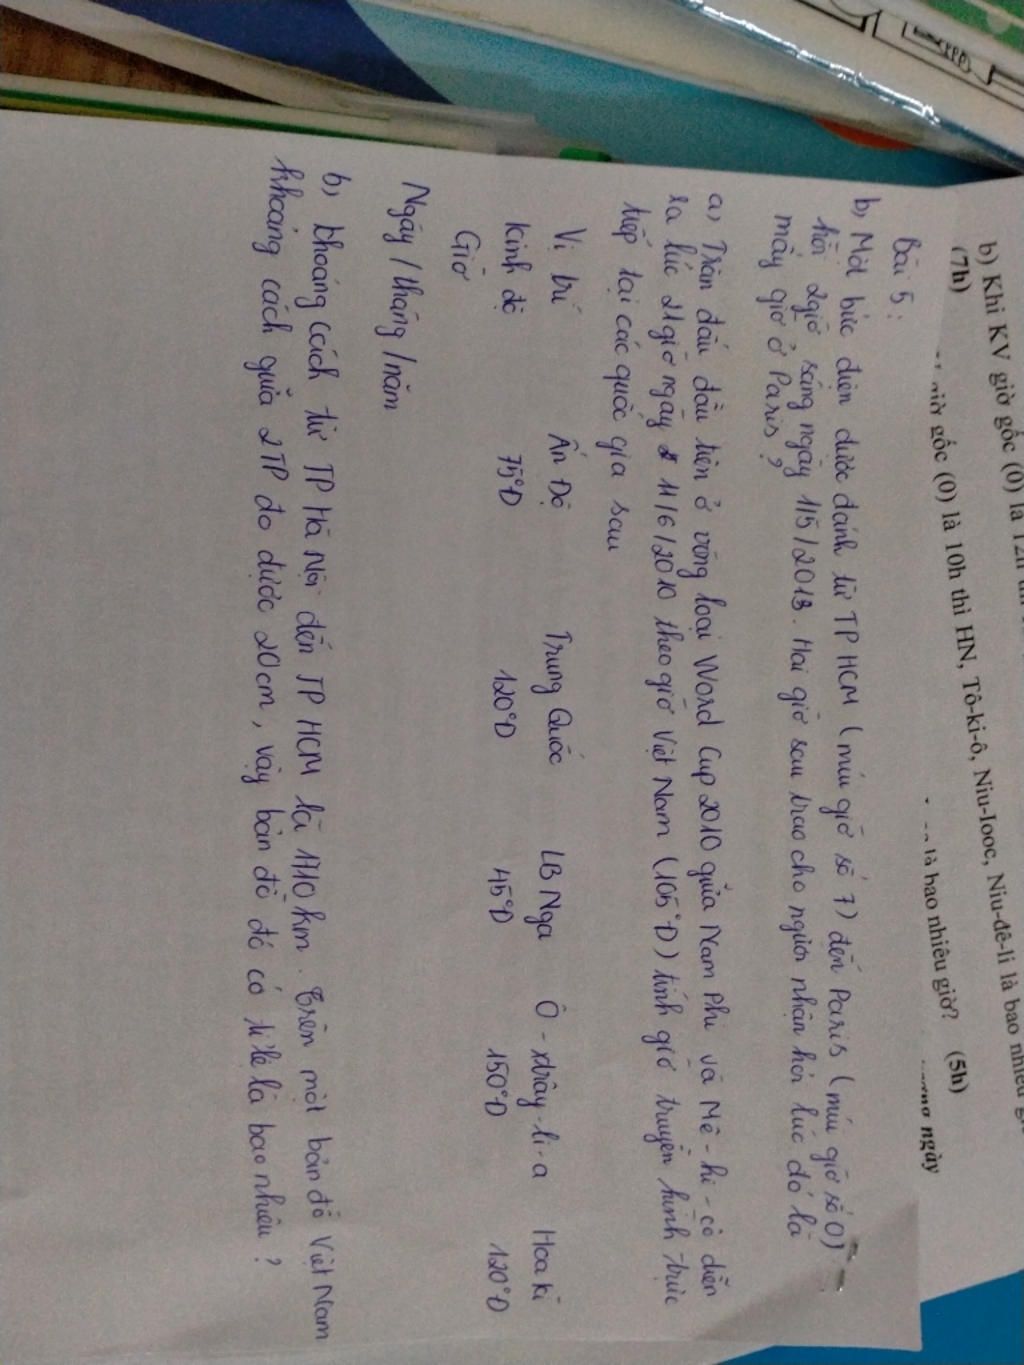 b) Khi KV giờ gốc (0) là 12h
(7h)
giờ gốc (0) là 10h thì HN, Tô-ki-ô, Niu-Iooc, Niu-đê-li là bao nhiêu
là bao nhiêu giờ? (5h)
ngày
Bài 5:
b, Một bức điện được đánh từ TP HCM (múi giờ số 7) đến Paris (múi giờ số 0)
hồi 2giờ sáng ngày 1/5/2013. Hai giờ sau trao cho người nhận hỏi lúc đó là
mấy giờ ở Paris?
a, Trận đấu đầu tiên ở vòng loại Word Cup 2010 giữa Nam Phi và Mê-hi-cô diễn
ra lúc 21giờ ngày 11/6/2010 theo giờ Việt Nam (105°Đ) tính giờ truyền hình trực
tiếp tại các quốc gia sau
Vị trí Ấn Độ Trung Quốc LB Nga Ô-xtrây-li-a Hoa kì
Kinh độ 75°Đ 120°Đ 45°Đ 150°Đ 120°Đ
Giờ
Ngày/tháng/năm
b, Khoảng cách từ TP Hà Nội đến TP HCM là 1710km. Trên một bản đồ Việt Nam
khoảng cách giữa 2TP đo được 20cm, vậy bản đồ đó có tỉ lệ là bao nhiêu?